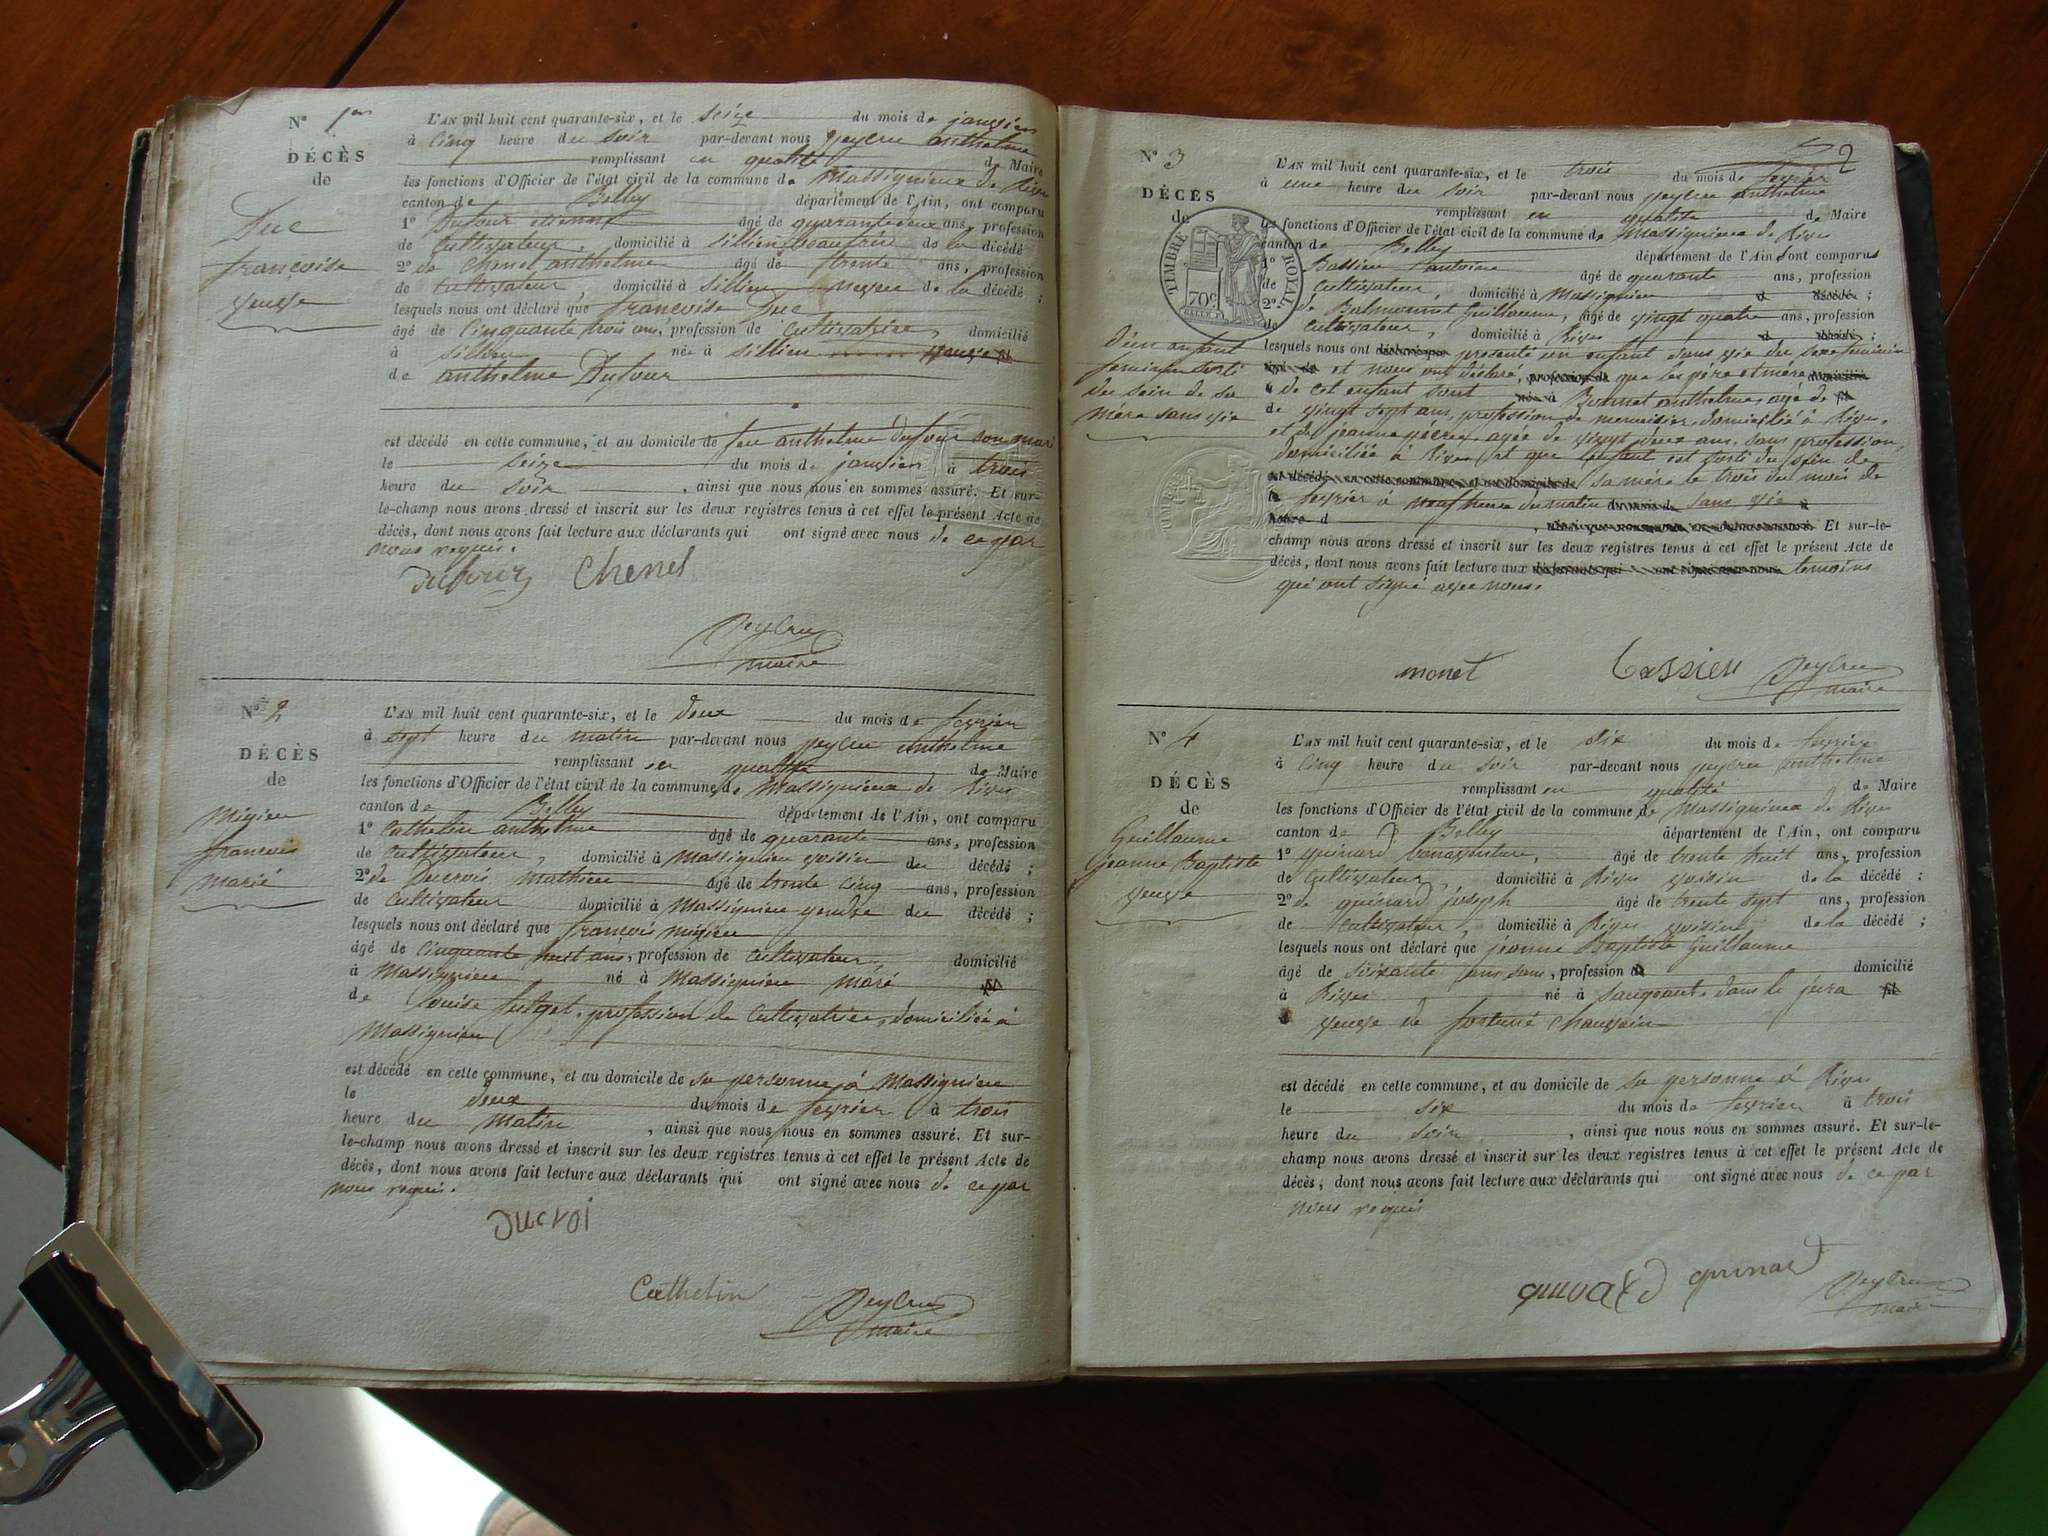 N° 1er
DÉCÈS
de
Duc
françoise
veuve
L'AN mil huit cent quarante-six, et le seize du mois de janvier
à cinq heure du soir par-devant nous peyleu anthelme
remplissant en qualité de Maire
les fonctions d'Officier de l'état civil de la commune de Massignieu de Rives
canton de Belley département de l'Ain, ont comparu
1° Dufour etienne âgé de quarante deux ans, profession
de Cultivateur, domicilié à sillien beaufrère de la décédé
2° de Chenel anthelme âgé de trente ans, profession
de Cultivateur, domicilié à sillien neveu de la décédé ;
lesquels nous ont déclaré que françoise Duc
âgé de cinquante trois ans, profession de Cultivatrice, domicilié
à sillien née à sillien veuve fil
de anthelme Dufour
est décédé en cette commune, et au domicile de feu anthelme dufour son mari
le seize du mois de janvier, à trois
heure du soir, ainsi que nous nous en sommes assuré. Et sur-
le-champ nous avons dressé et inscrit sur les deux registres tenus à cet effet le présent Acte de
décès, dont nous avons fait lecture aux déclarants qui ont signé avec nous de ce par
nous requis.
dufour Chenel
Peyleu
maire
N° 2
DÉCÈS
de
Migieu
francois
marié
L'AN mil huit cent quarante-six, et le deux du mois de fevrier
à sept heure du matin par-devant nous peyleu anthelme
remplissant en qualité de Maire
les fonctions d'Officier de l'état civil de la commune de Massignieu de Rives
canton de Belley département de l'Ain, ont comparu
1° Cathelin anthelme âgé de quarante ans, profession
de Cultivateur, domicilié à Massignieu voisin du décédé ;
2° de Ducroi mathieu âgé de trente cinq ans, profession
de Cultivateur domicilié à Massignieu gendre du décédé ;
lesquels nous ont déclaré que francois migieu
âgé de cinquante huit ans, profession de Cultivateur, domicilié
à Massignieu né à Massignieu marié fil
de Louise profession de Cultivatrice, domiciliée à
Massignieu
est décédé en cette commune, et au domicile de sa personne à Massignieu
le deux du mois de fevrier à trois
heure du matin, ainsi que nous nous en sommes assuré. Et sur-
le-champ nous avons dressé et inscrit sur les deux registres tenus à cet effet le présent Acte de
décès, dont nous avons fait lecture aux déclarants qui ont signé avec nous de ce par
nous requis.
ducroi
Cathelin Peyleu
maire
2
N° 3
DÉCÈS
de
TIMBRE ROYAL
70c
D'un enfant
feminin sorti
du sein de sa
mère sans vie
L'AN mil huit cent quarante-six, et le trois du mois de fevrier
à une heure du soir par-devant nous peyleu anthelme
remplissant en qualité de Maire
les fonctions d'Officier de l'état civil de la commune de Massignieu de Rives
canton de Belley département de l'Ain ont comparus
1° Bassieu antoine âgé de quarante ans, profession
de Cultivateur, domicilié à Massignieu d décédé ;
2° de Guillaume, âgé de vingt quatre ans, profession
de Cultivateur, domicilié à Rives d décédé ;
lesquels nous ont déclaré que presenté un enfant sans vie du sexe feminin
âgé de et nous ont déclaré, profession de que les père et mère domicilié
à de cet enfant sont née à Bonnet anthelme, agé de fil
de vingt sept ans, profession de menuisier, domicilié à Rives,
et de jeanne agée de vingt deux ans, sans profession,
domiciliée à Rives et que l'enfant est sorti du sein de
est décédé en cette commune, et au domicile de sa mère le trois du mois de
le fevrier à neuf heure du matin du mois de sans vie à
heure d , ainsi que nous nous en sommes assuré Et sur-le-
champ nous avons dressé et inscrit sur les deux registres tenus à cet effet le présent Acte de
décès, dont nous avons fait lecture aux déclarants qui ont signé avec nous temoins
qui ont signé avec nous.
monet Bassieu Peyleu
maire
N° 4
DÉCÈS
de
Guillaume
Jeanne Baptiste
veuve
L'AN mil huit cent quarante-six, et le six du mois de fevrier
à cinq heure du soir par-devant nous peyleu anthelme
remplissant en qualité de Maire
les fonctions d'Officier de l'état civil de la commune de Massignieu de Rives
canton de Belley département de l'Ain, ont comparu
1° guinard bonaventure, âgé de trente huit ans, profession
de Cultivateur, domicilié à Rives voisin de la décédé ;
2° de guinard joseph âgé de trente sept ans, profession
de Cultivateur, domicilié à Rives voisin de la décédé ;
lesquels nous ont déclaré que jeanne Baptiste Guillaume
âgé de soixante ans sans, profession de domicilié
à Rives né à dans le jura fil
d veuve de fortuné
est décédé en cette commune, et au domicile de sa personne à Rives
le six du mois de fevrier à trois
heure du soir, ainsi que nous nous en sommes assuré. Et sur-le-
champ nous avons dressé et inscrit sur les deux registres tenus à cet effet le présent Acte de
décès, dont nous avons fait lecture aux déclarants qui ont signé avec nous de ce par
nous requis
guinard Peyleu
maire